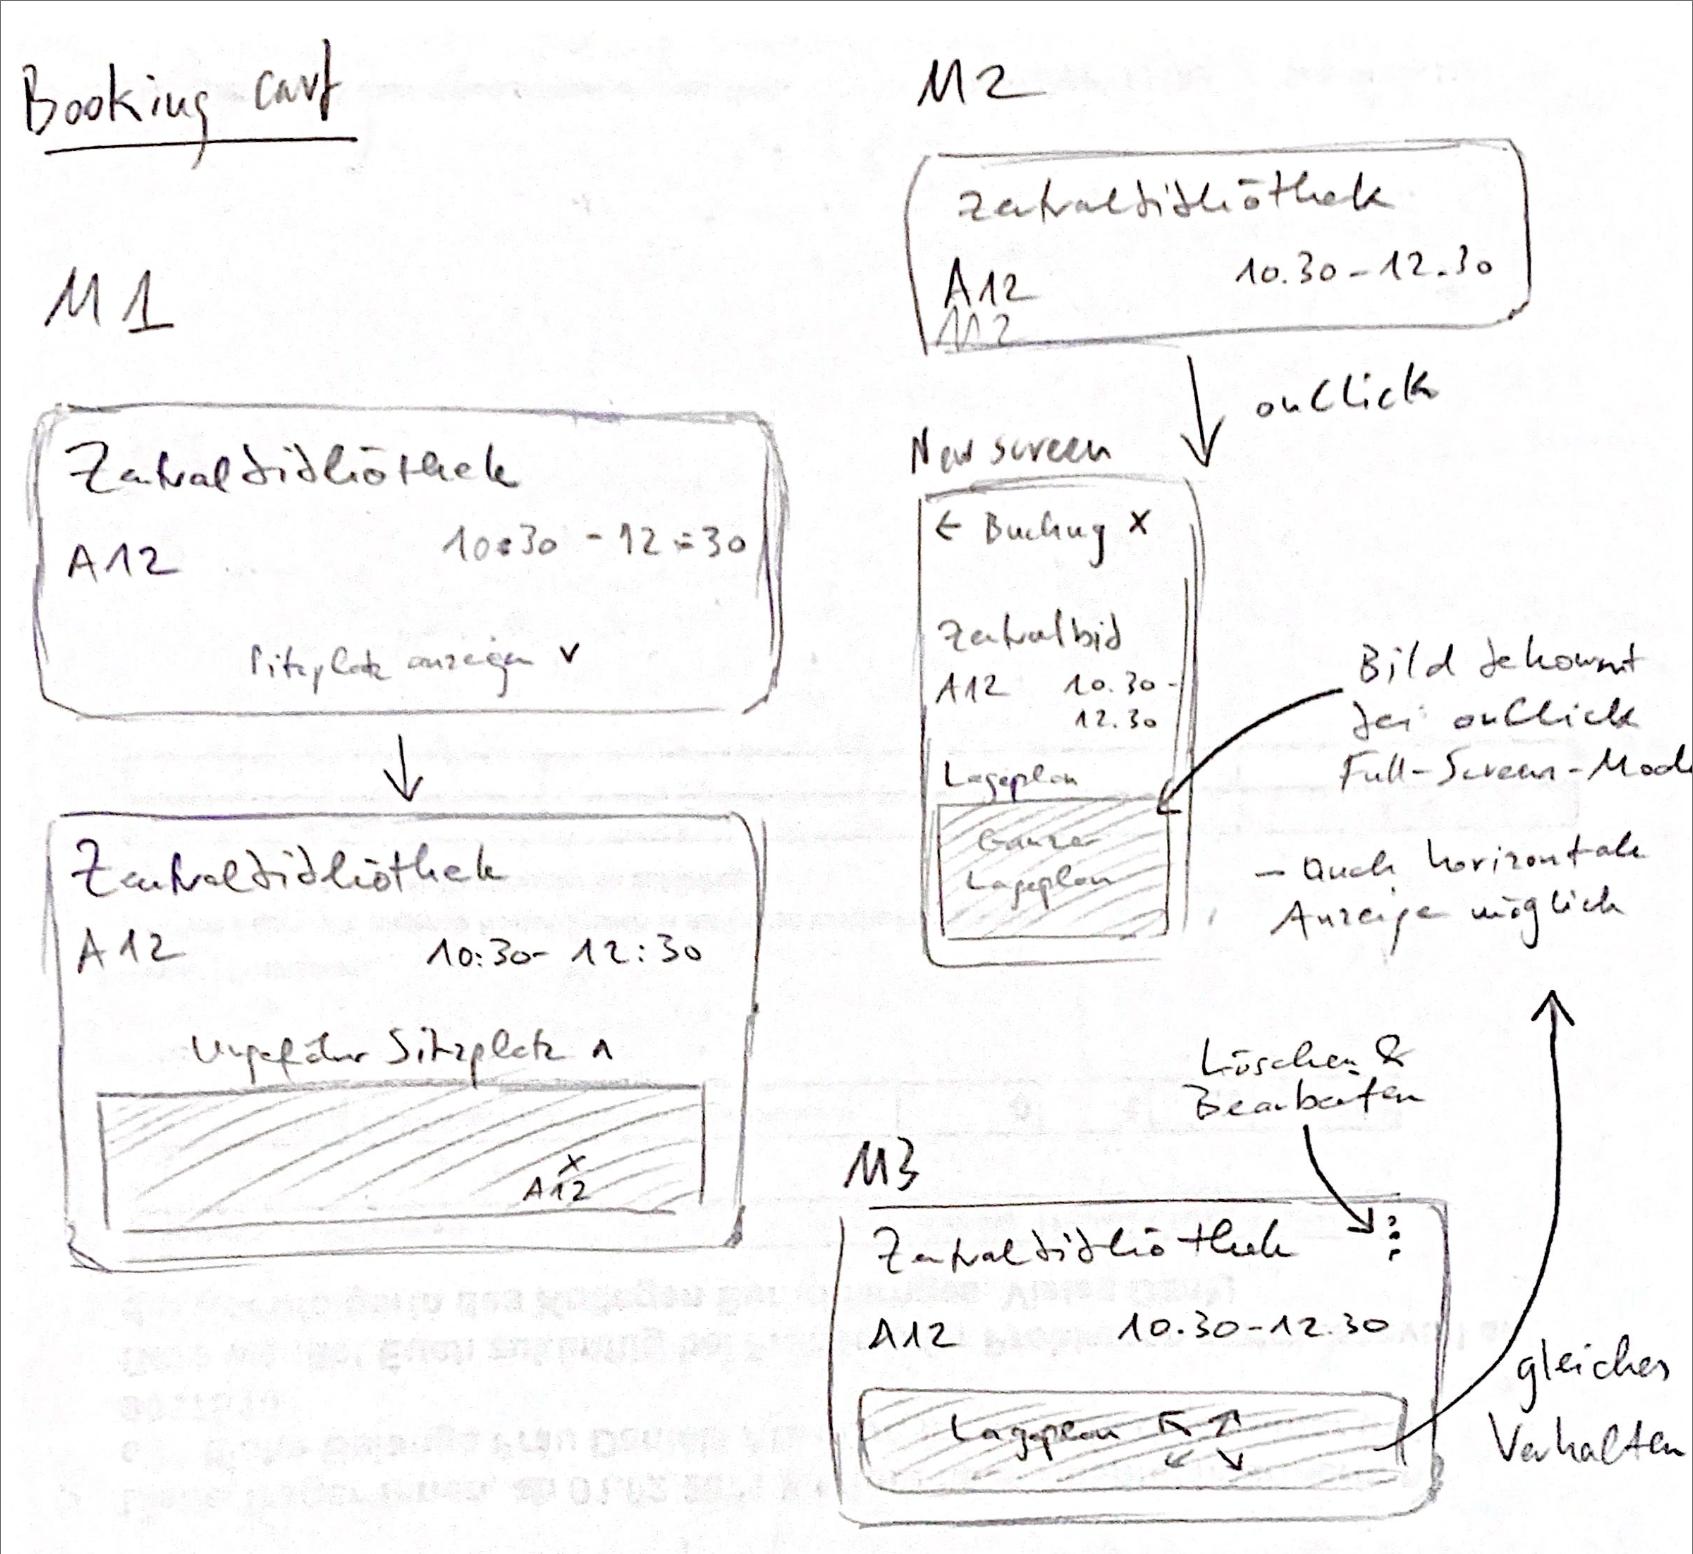 Booking cart
M1
Zentralbibliothek
A12
10:30 - 12:30
Sitzplatz anzeigen v
Zentralbibliothek
A12
10:30- 12:30
Ungefährer Sitzplatz ʌ
x
A12
M2
Zentralbibliothek
A12
10.30-12.30
M2
onClick
New screen
← Buchung x
Zentralbib
A12 10.30-
12.30
Lageplan
Ganzer
Lageplan
Bild bekommt
bei onClick
Full-Screen-Mode
- Auch horizontale
Anzeige möglich
Löschen &
Bearbeiten
M3
Zentralbibliothek
A12
10.30-12.30
Lageplan
gleiches
Verhalten